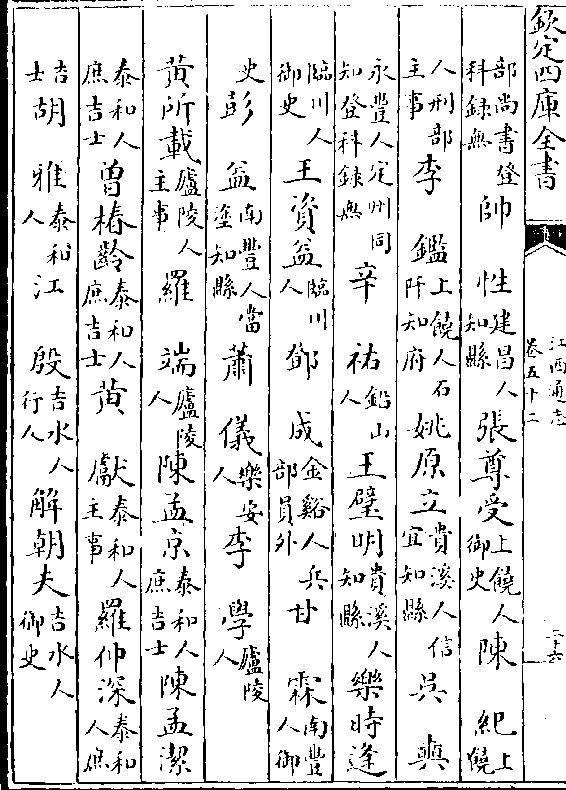 欽定四庫全書
江西通志
卷五十二
二十六
部尚書登科録無 帥 性 建昌人知縣 張尊受 上饒人御史 陳 紀 上饒
人刑部主事 李 鑑 上饒人石阡知府 姚原立 貴溪人信宜知縣 吳 輿
永豐人定州同知登科録無 辛 祐 鉛山人 王璧明 貴溪人知縣 樂時逢
臨川人御史 王資益 臨川人 鄧 成 金谿人兵部員外 甘 霖 南豐人御
史 彭 益 南豐人當塗知縣 蕭 儀 樂安人 李 學 廬陵人
黄所載 廬陵人主事 羅 端 廬陵人 陳孟京 泰和人庶吉士 陳孟潔
泰和人庶吉士 曾椿齡 泰和人庶吉士 黄 獻 泰和人主事 羅仲深 泰和人庶
吉士 胡 雅 泰和人 江 殷 吉水人行人 解朝夫 吉水人御史